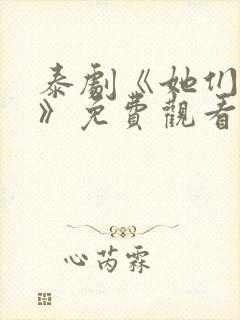 泰劇《她们
》免費觀看
心芮霖